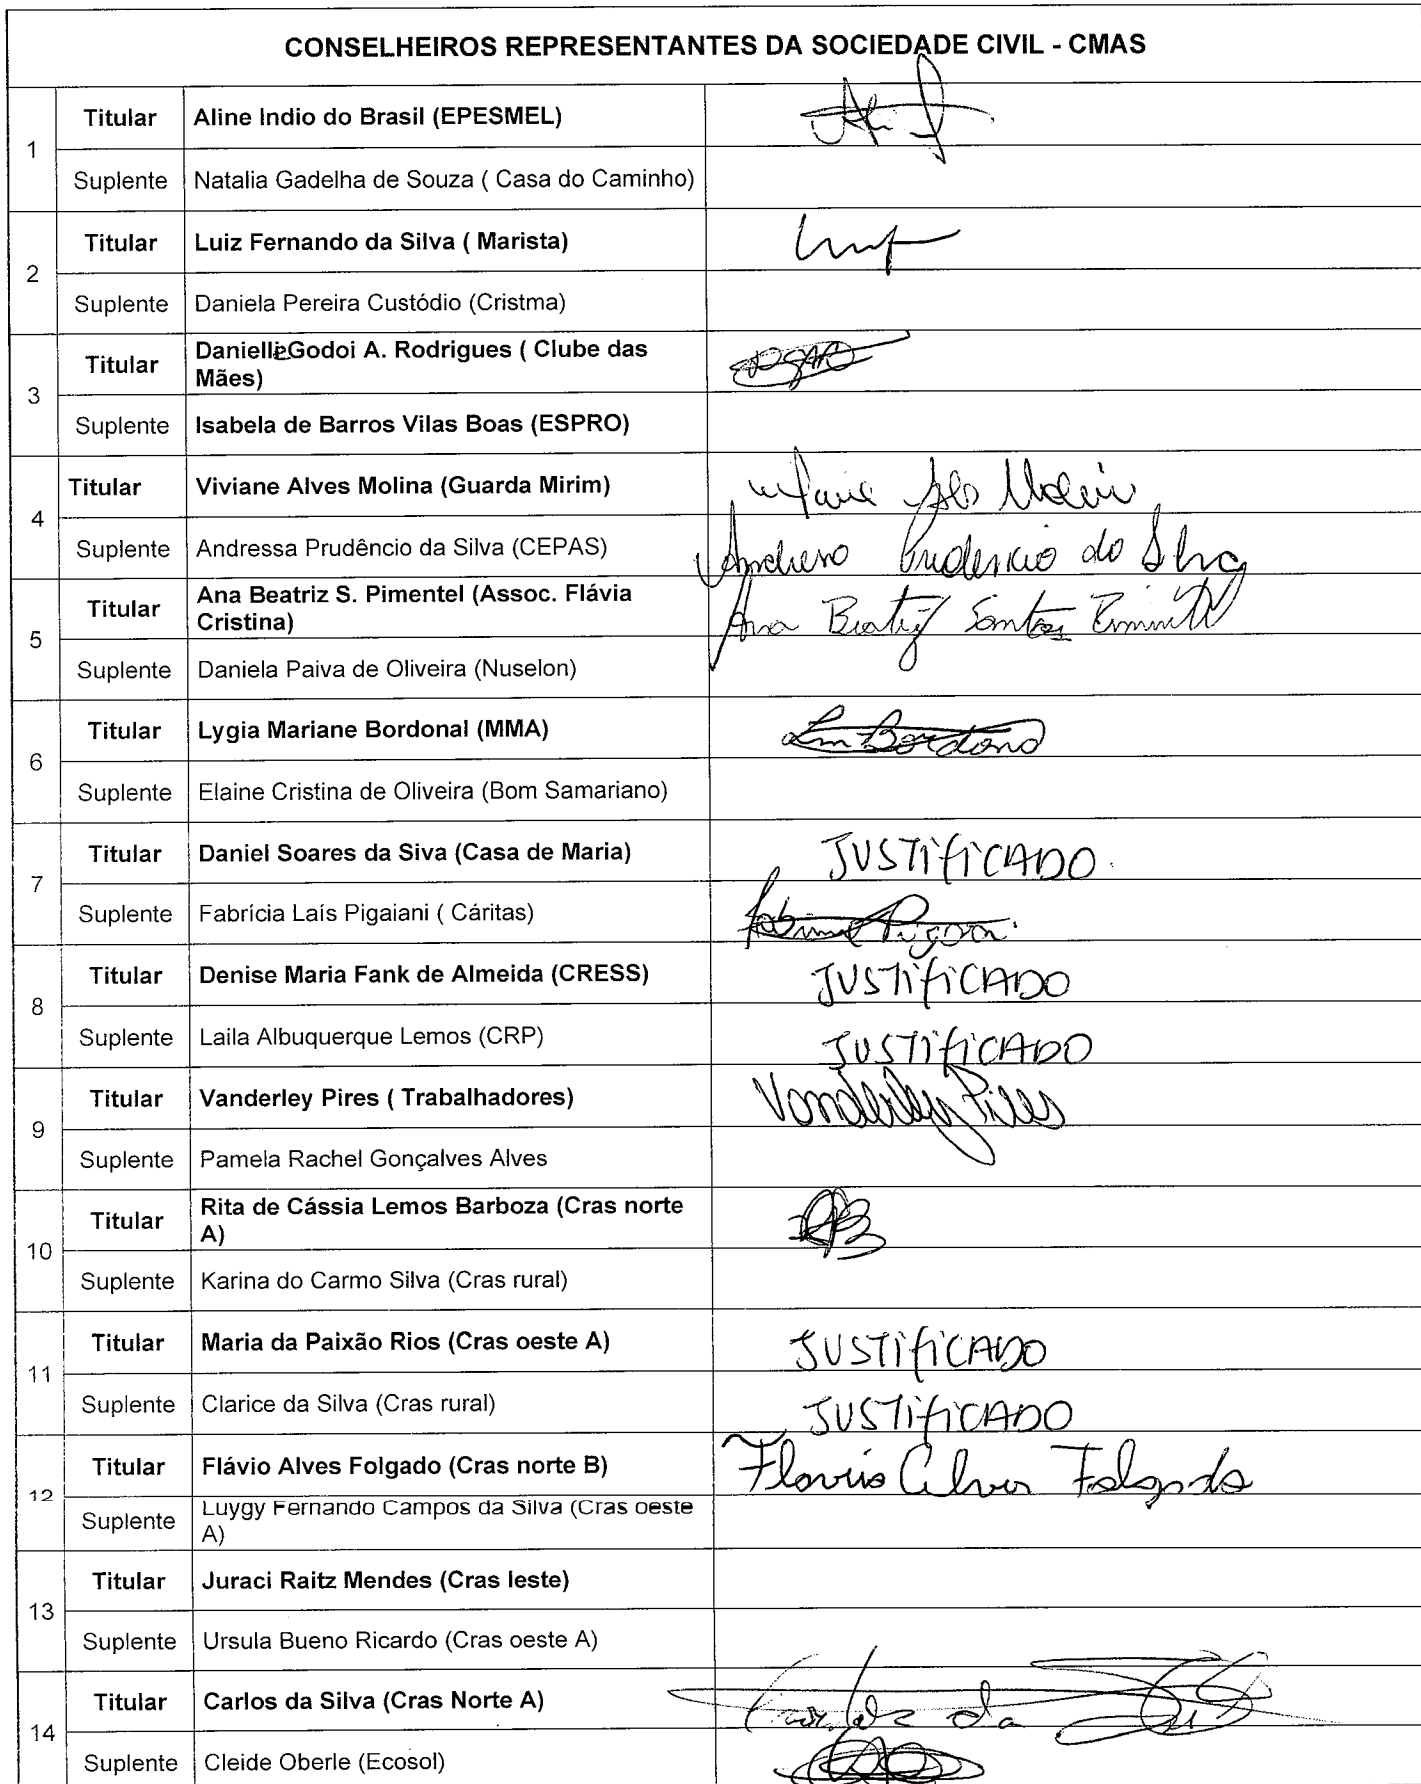 CONSELHEIROS REPRESENTANTES DA SOCIEDADE CIVIL - CMAS
1
Titular Aline Indio do Brasil (EPESMEL)
Suplente Natalia Gadelha de Souza ( Casa do Caminho)
2
Titular Luiz Fernando da Silva ( Marista)
Suplente Daniela Pereira Custódio (Cristma)
3
Titular Danielle Godoi A. Rodrigues ( Clube das
Mães)
Suplente Isabela de Barros Vilas Boas (ESPRO)
4
Titular Viviane Alves Molina (Guarda Mirim)
Suplente Andressa Prudêncio da Silva (CEPAS)
5
Titular Ana Beatriz S. Pimentel (Assoc. Flávia
Cristina) Ana Beatriz Santos Pimentel
Suplente Daniela Paiva de Oliveira (Nuselon)
6
Titular Lygia Mariane Bordonal (MMA)
Suplente Elaine Cristina de Oliveira (Bom Samariano)
7
Titular Daniel Soares da Siva (Casa de Maria) JUSTIFICADO
Suplente Fabrícia Laís Pigaiani ( Cáritas)
8
Titular Denise Maria Fank de Almeida (CRESS) JUSTIFICADO
Suplente Laila Albuquerque Lemos (CRP) JUSTIFICADO
9
Titular Vanderley Pires ( Trabalhadores) Vanderley Pires
Suplente Pamela Rachel Gonçalves Alves
10
Titular Rita de Cássia Lemos Barboza (Cras norte
A)
Suplente Karina do Carmo Silva (Cras rural)
11
Titular Maria da Paixão Rios (Cras oeste A) JUSTIFICADO
Suplente Clarice da Silva (Cras rural) JUSTIFICADO
12
Titular Flávio Alves Folgado (Cras norte B) Flavio Alves Folgado
Suplente Luygy Fernando Campos da Silva (Cras oeste
A)
13
Titular Juraci Raitz Mendes (Cras leste)
Suplente Ursula Bueno Ricardo (Cras oeste A)
14
Titular Carlos da Silva (Cras Norte A)
Suplente Cleide Oberle (Ecosol)